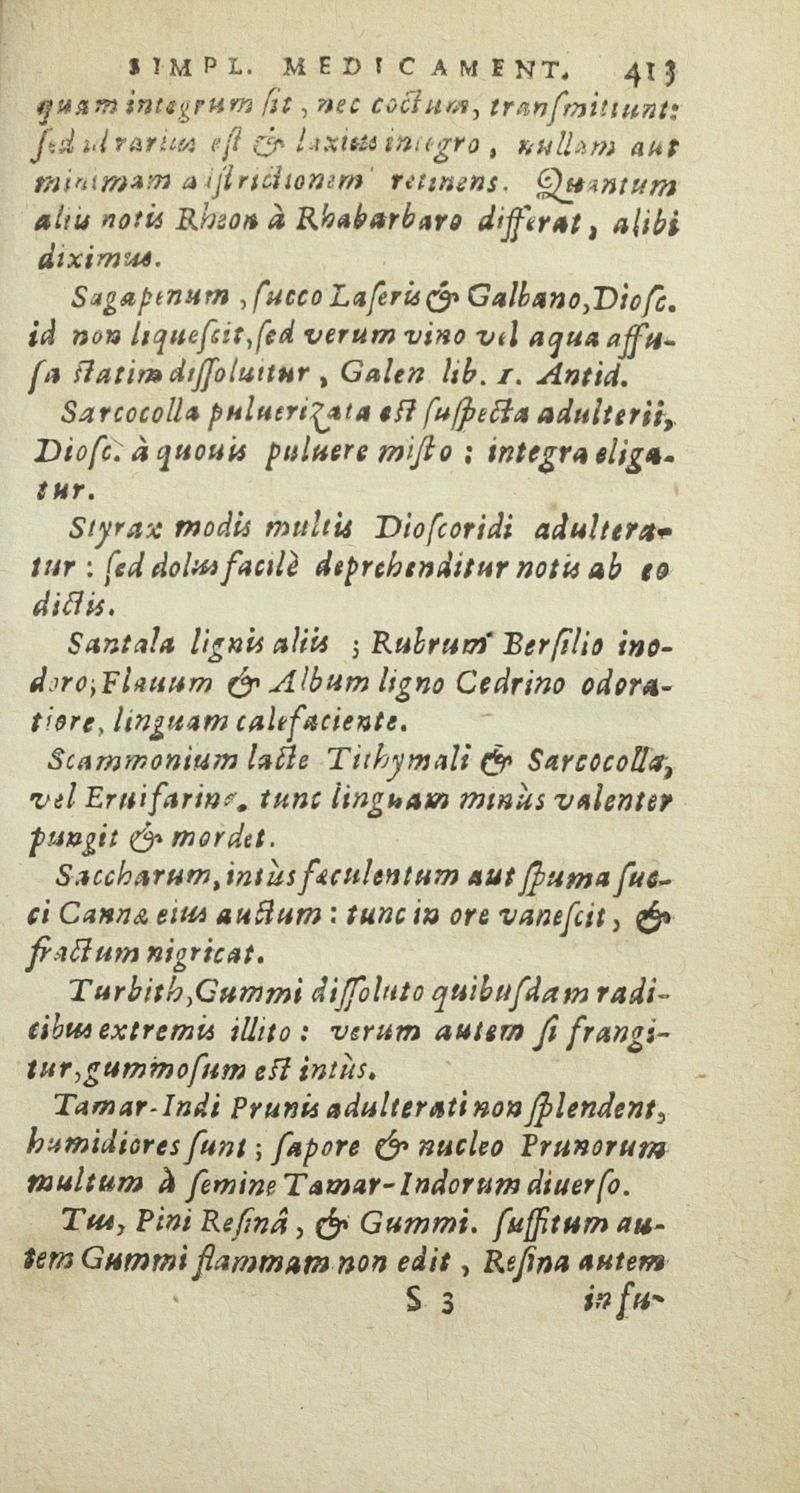 SIMPL. MEDICAMENT. 413
quam integrum ſit, nec coctum, tranſmittunt:
ſed id rarius eſt & laxius integro, nullam aut
minimam aſtrictionem retinens. Quantum
aliis notis Rheon à Rhabarbaro differat, alibi
diximus.
Sagapenum, ſucco Laſeris & Galbano, Dioſc.
id non liqueſcit, ſed verum vino vel aqua affu-
ſa ſtatim diſſoluitur, Galen lib. 1. Antid.
Sarcocolla pulueriZata eſt ſuſpecta adulterii,
Dioſc. à quouis puluere miſto : integra eliga-
tur.
Styrax modis multis Dioſcoridi adultera-
tur : ſed dolus facilè deprehenditur notis ab eo
dictis.
Santala lignis aliis ; Rubrum Berſilio ino-
doro; Flauum & Album ligno Cedrino odora-
tiore, linguam calefaciente.
Scammonium lacte Tithymali & Sarcocolla,
vel Erui farina, tunc linguam minùs valenter
pungit & mordet.
Saccharum, intùs fæculentum aut ſpuma ſuc-
ci Cannæ eius auctum : tunc in ore vaneſcit, &
fractum nigricat.
Turbith, Gummi diſſoluto quibuſdam radi-
cibus extremis illito : verum autem ſi frangi-
tur, gummoſum eſt intùs.
Tamar-Indi Prunis adulterati non ſplendent,
humidiores ſunt ; ſapore & nucleo Prunorum
multum à ſemine Tamar-Indorum diuerſo.
Tus, Pini Reſinâ, & Gummi. ſuffitum au-
tem Gummi flammam non edit, Reſina autem
S 3 in fu-